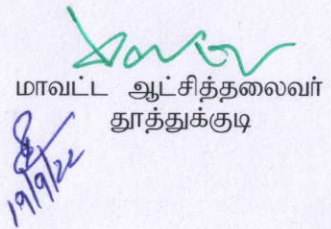 மாவட்ட ஆட்சித்தலைவர்
தூத்துக்குடி
19/9/22